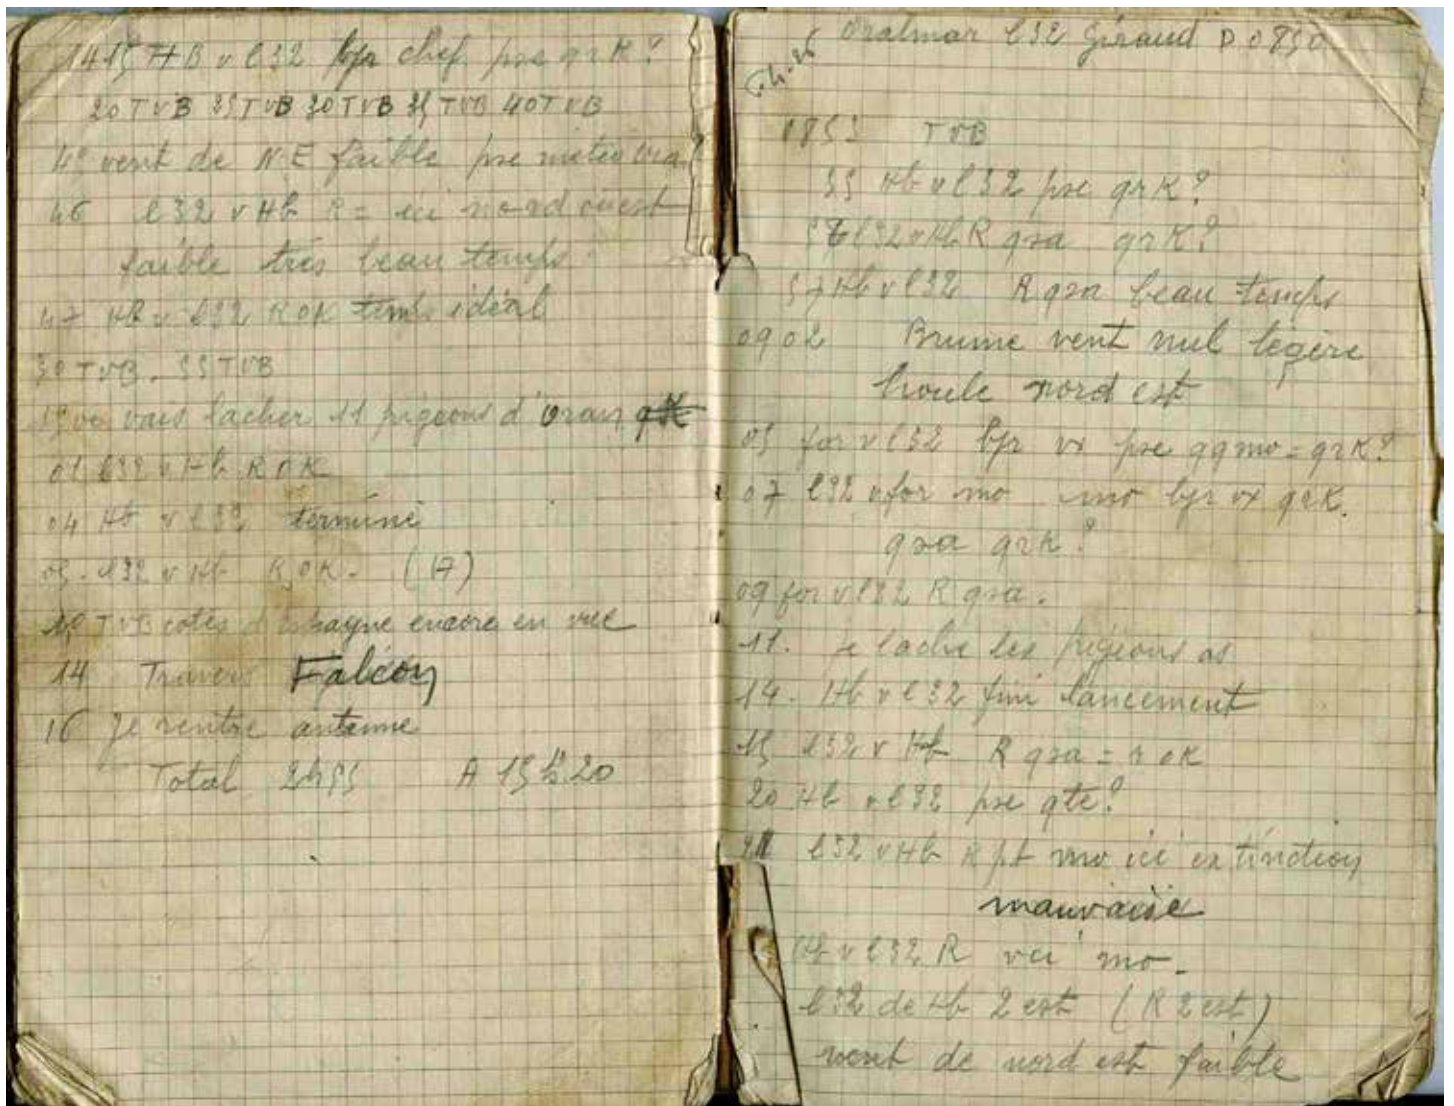 1415 HB v l32 bjr chef pse qrk?
20 TVB 25 TVB 30 TVB 35 TVB 40 TVB
45 vent de N.E faible pse météo
46 l32 v Hb R = ici nord ouest
faible très beau temps
47 Hb v l32 R OK temps idéal
50 TVB. 55 TVB
1500 vais lacher 11 pigeons d'Oran
01 l32 v Hb R OK
04 Hb v l32 terminé
05. l32 v Hb R OK. (17)
10 TVB cotes d'Espagne encore en vue
14 Travers Falcon
16 Je rentre antenne
Total 2455 A 15h20
Oralmar l32 Giraud D 0850
TVB
55 Hb v l32 pse qrk?
l32 v Hb R qsa qrk?
57 Hb v l32 R qsa beau temps
0902 Brume vent nul légère
houle nord est
05 for v l32 bjr vx pse qq mo = qrk?
07 l32 v for mo mo bjr vx qrk.
qsa qrk?
09 for v l32 R qsa.
11. je lache les pigeons as
14. Hb v l32 fini lancement
15 l32 v Hb R qsa = r ok
20 Hb v l32 pse qte?
21 l32 v Hb R pt mo ici extinction
mauvaise
Hb v l32 R vci mo.
l32 de Hb 2 est (R 2 est)
vent de nord est faible